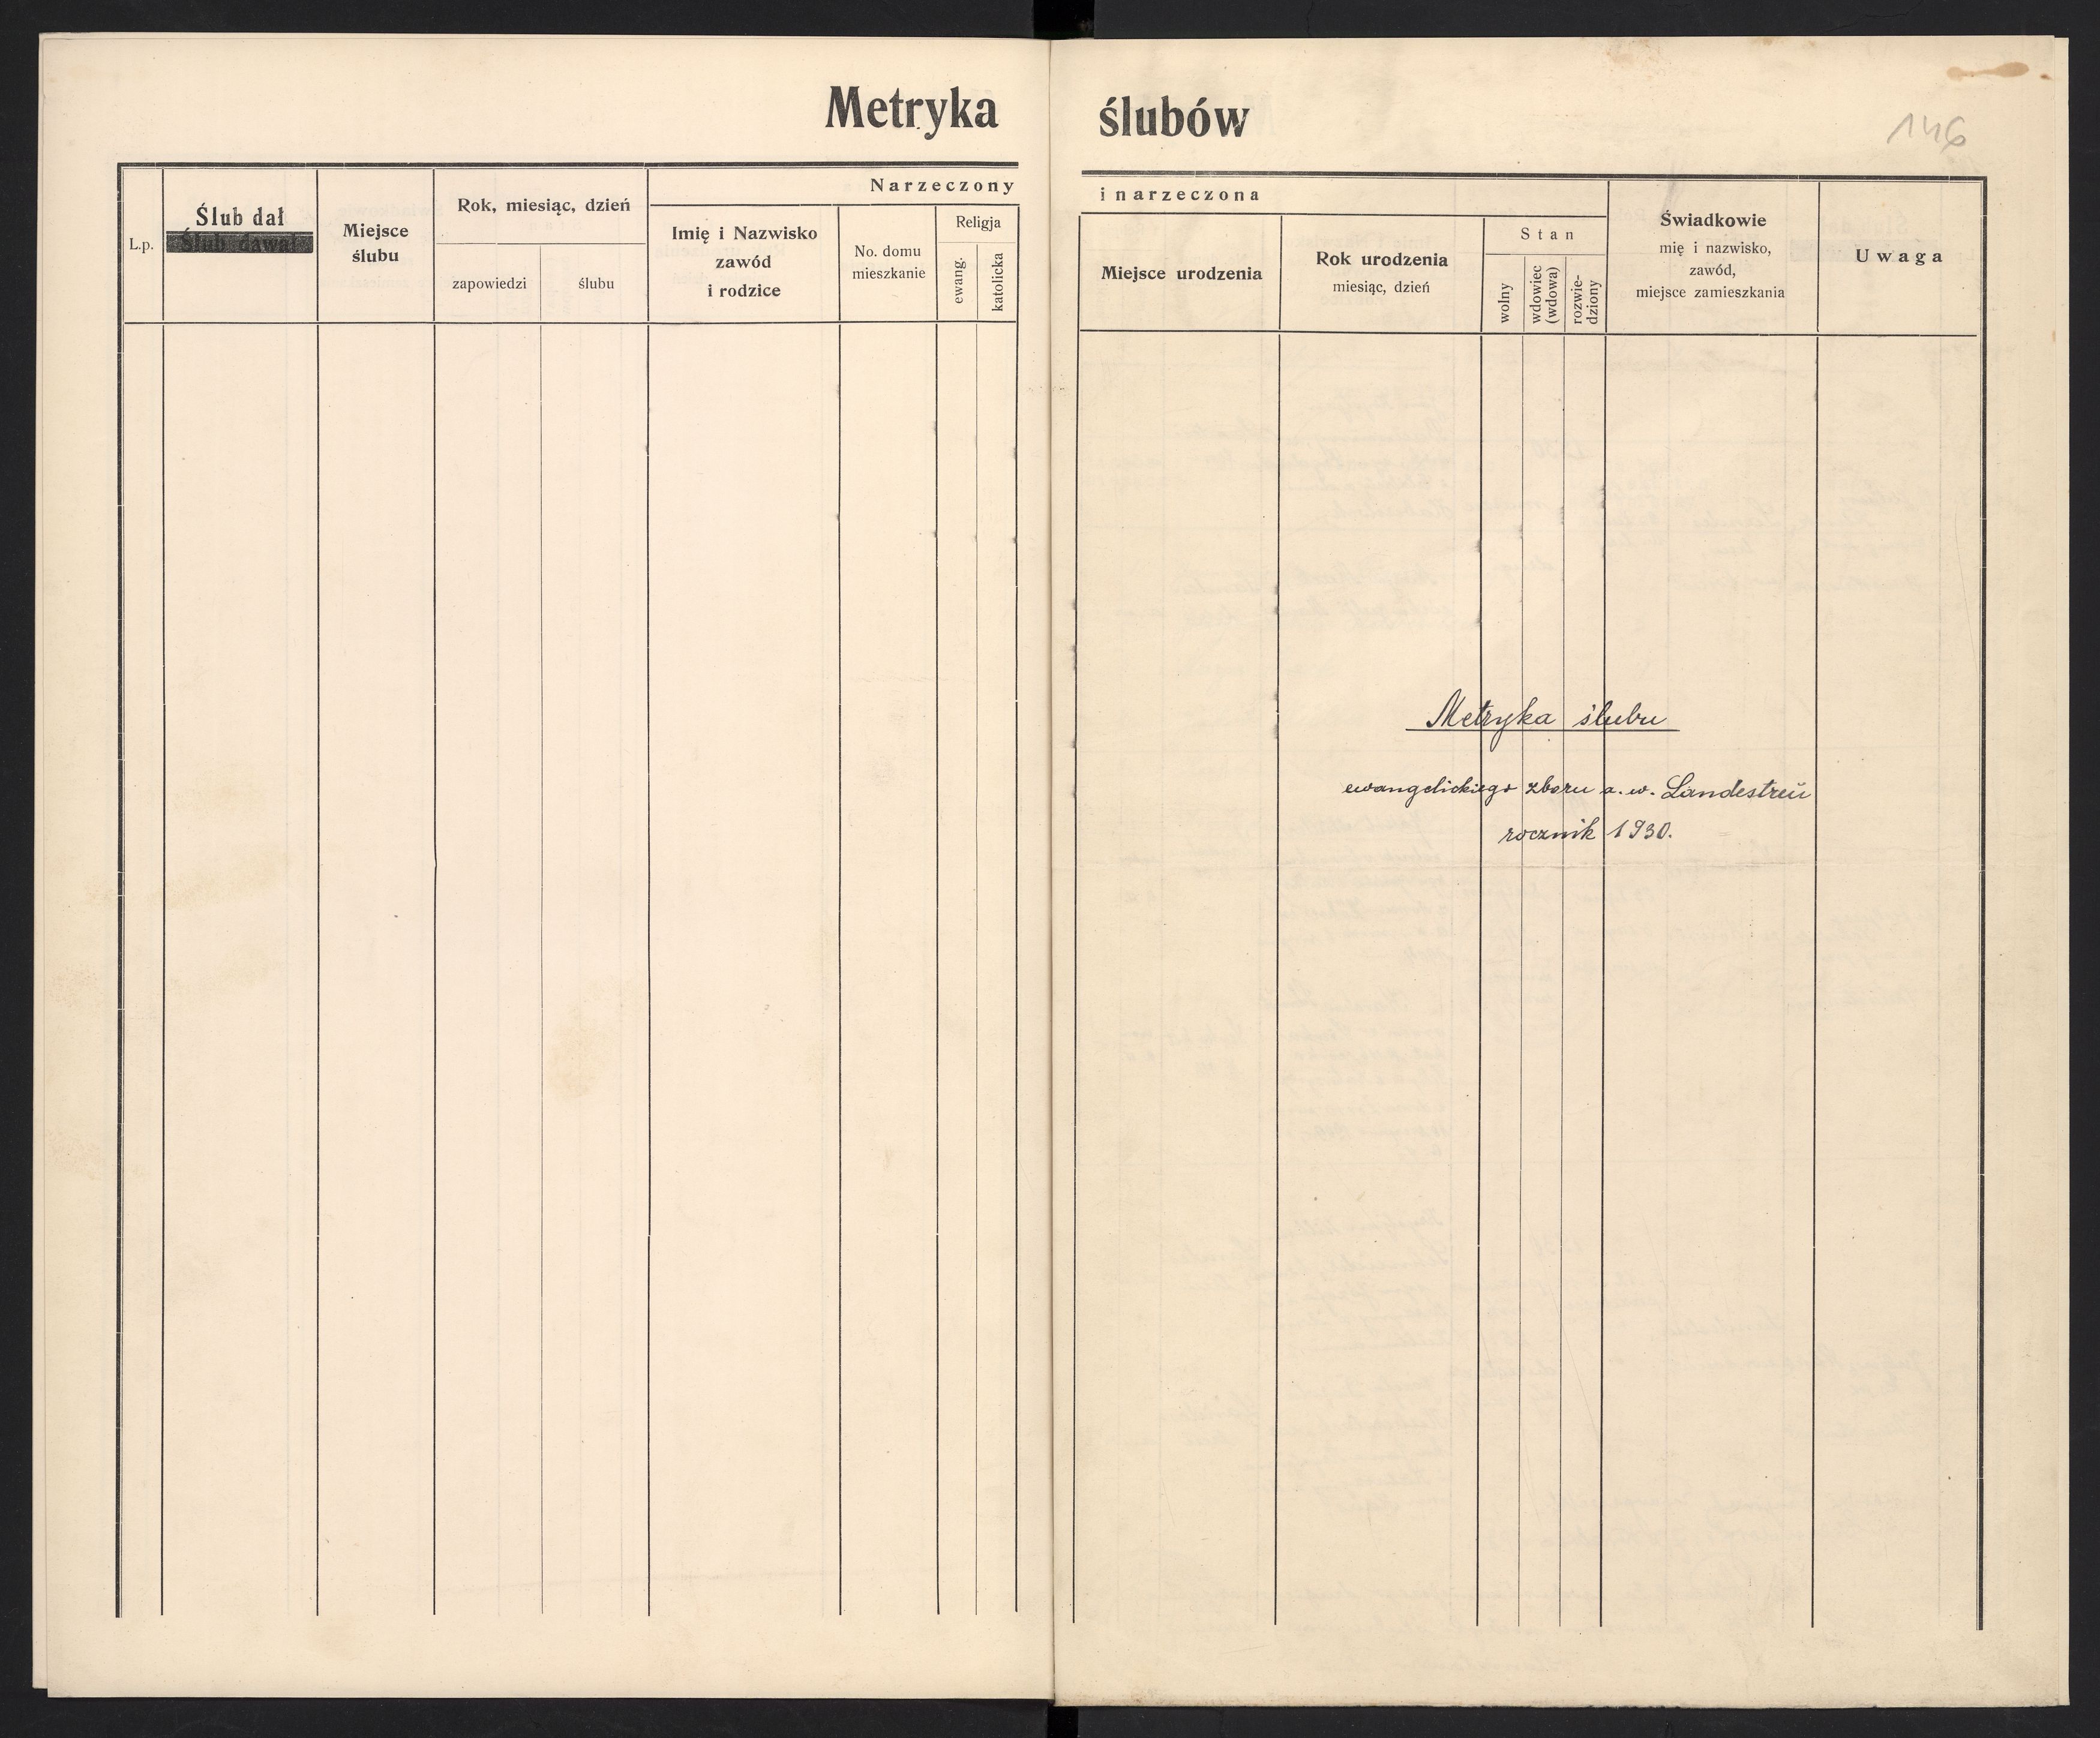 Metryka ślubów
146
L.p.
Ślub dał
Ślub dawał
Miejsce
ślubu
Rok, miesiąc, dzień
zapowiedzi
ślubu
Narzeczony
Imię i Nazwisko
zawód
i rodzice
No. domu
mieszkanie
Religja
ewang.
katolicka
i narzeczona
Miejsce urodzenia
Rok urodzenia
miesiąc, dzień
Stan
wolny
wdowiec
(wdowa)
rozwie-
dziony
Świadkowie
mię i nazwisko,
zawód,
miejsce zamieszkania
Uwaga
Metryka ślubu
ewangelickiego zboru a. w. Landestreü
rocznik 1930.